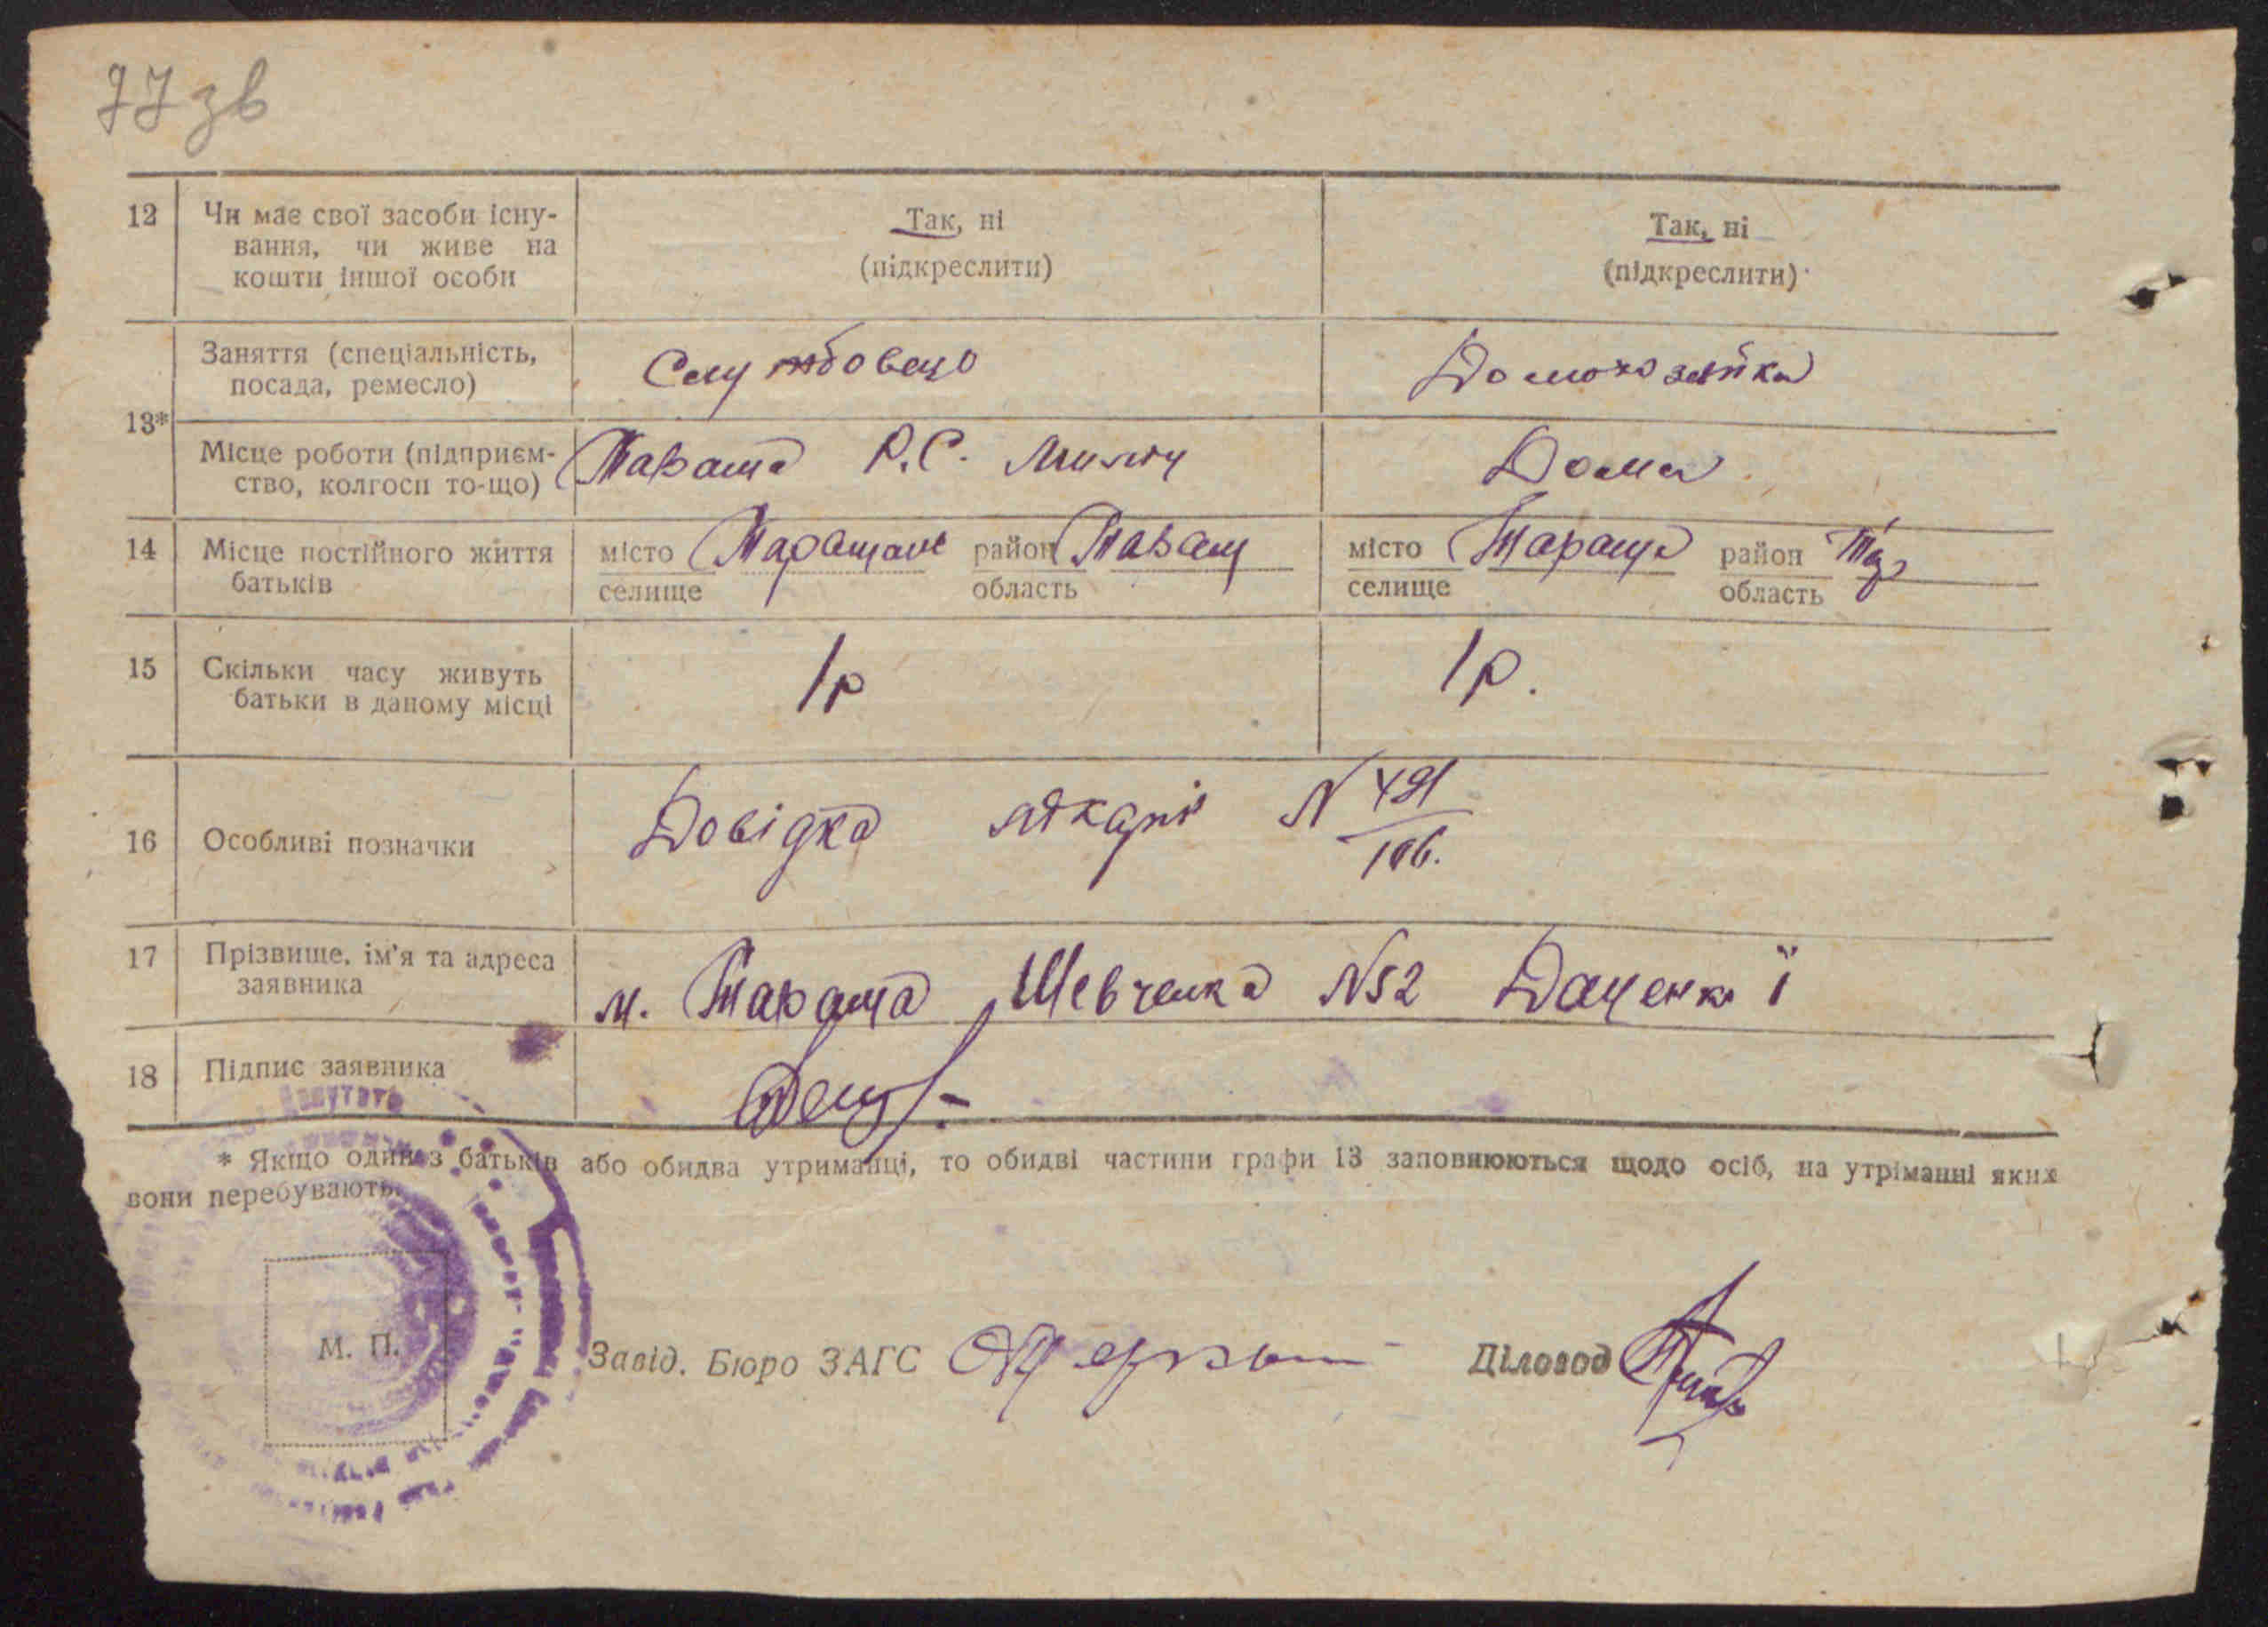 77 зв
12 Чи має свої засоби існу-
вання, чи живе на
кошти іншої особи
Так, ні
(підкреслити)
Так, ні
(підкреслити)
13*
Заняття (спеціальність,
посада, ремесло)
Службовець
Домохозяйка
Місце роботи (підприєм-
ство, колгосп то-що)
Тараща Р.С.
Дома
14 Місце постійного життя
батьків
місто Тараща район Таращ
селище область
місто Тараща район Тар
селище область
15 Скільки часу живуть
батьки в даному місці
1р
1р.
16 Особливі позначки
Довідка N 491
106.
17 Прізвище, ім'я та адреса
заявника
м. Тараща Шевченка N52 Даценко Ї
18 Підпис заявника
* Якщо один з батьків або обидва утриманці, то обидві частини графи 13 заповнюються щодо осіб, на утріманні яких
вони перебувають.
М. П.
Завід. Бюро ЗАГС
Діловод